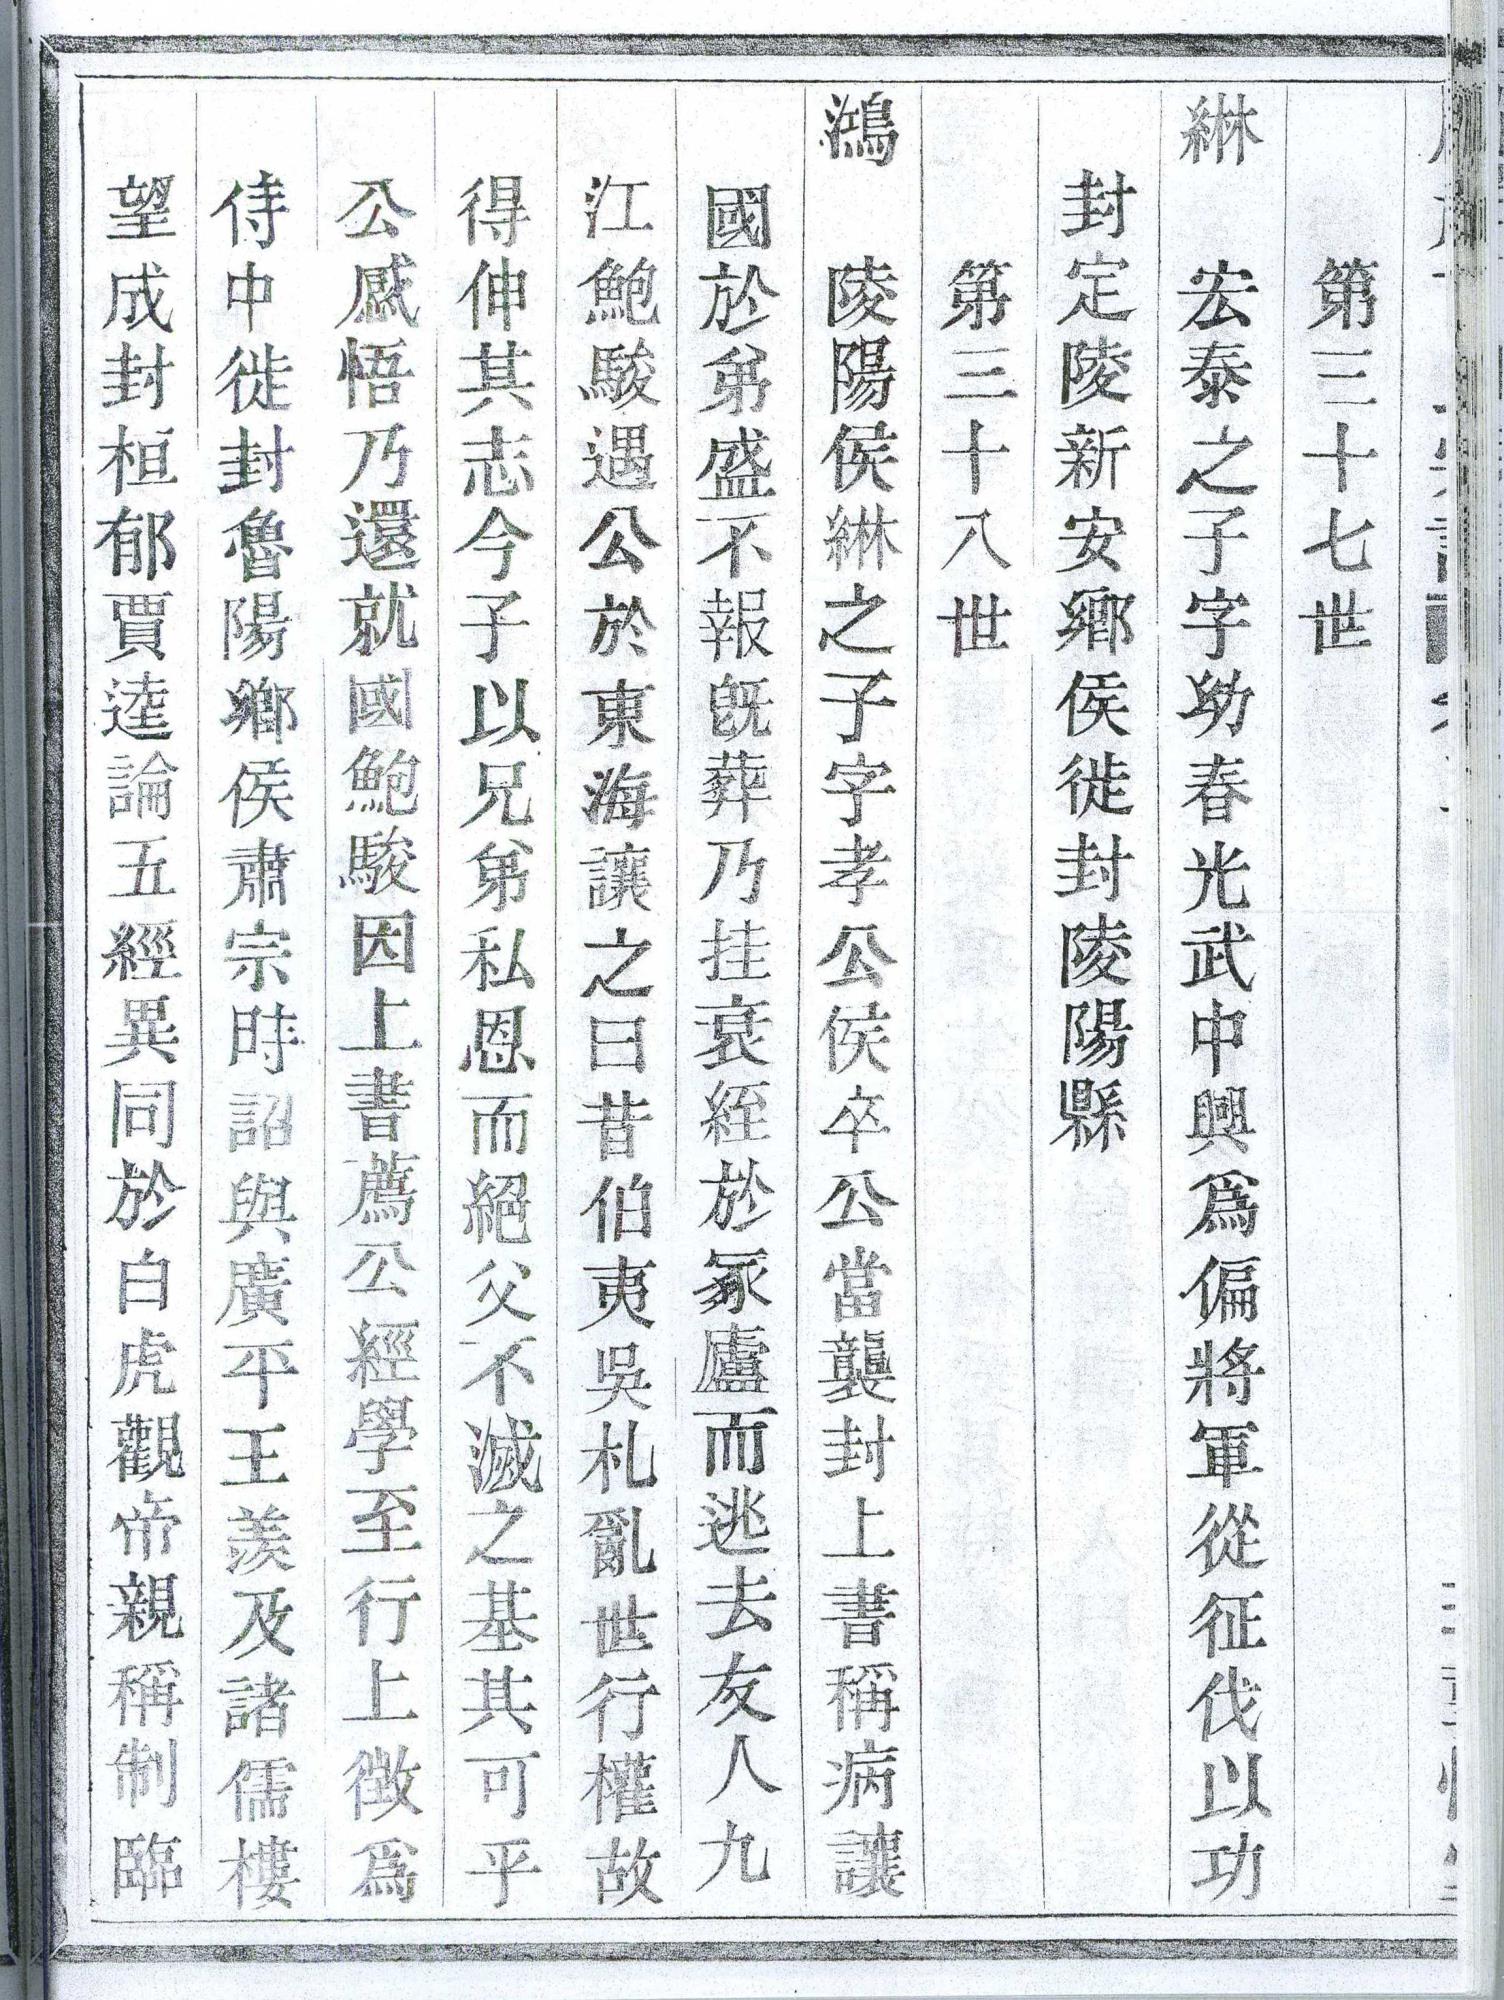 第三十七世
綝　宏泰之子字幼春光武中興爲偏將軍從征伐以功
封定陵新安鄉侯徙封陵陽縣
第三十八世
鴻　陵陽侯綝之子字孝公侯卒公當襲封上書稱病讓
國於弟盛不報旣葬乃挂衰絰於冢廬而逃去友人九
江鮑駿遇公於東海讓之曰昔伯夷吳札亂世行權故
得伸其志今子以兄弟私恩而絕父不滅之基其可乎
公感悟乃還就國鮑駿因上書薦公經學至行上徵爲
侍中徙封魯陽鄉侯肅宗時詔與廣平王羨及諸儒樓
望成封桓郁賈逵論五經異同於白虎觀帝親稱制臨